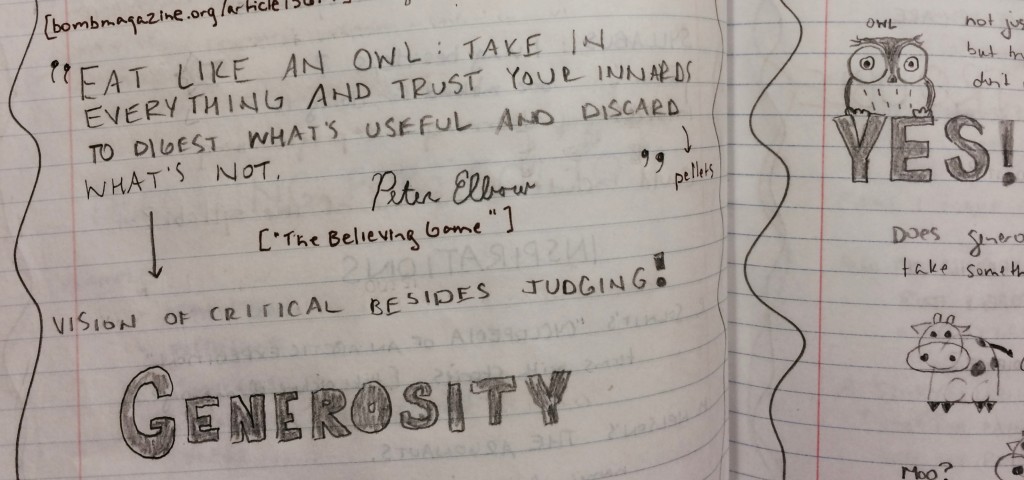 [bombmagazine.org/article
"EAT LIKE AN OWL: TAKE IN
EVERYTHING AND TRUST YOUR INNARDS
TO DIGEST WHAT'S USEFUL AND DISCARD
WHAT'S NOT. "
pellets
Peter Elbow
["The Believing Game"]
VISION OF CRITICAL BESIDES JUDGING!
GENEROSITY
OWL
not
but
don't
YES!
Does
take
Moo?